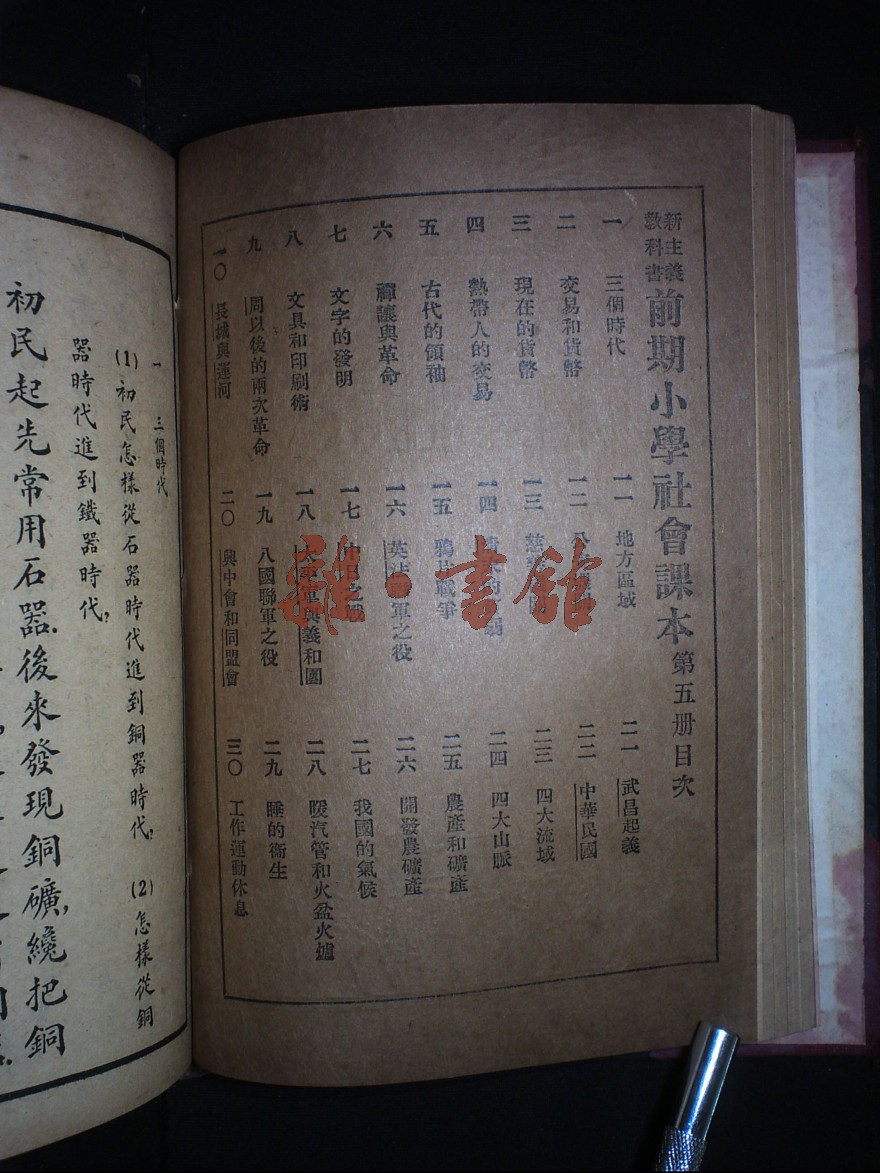 新主義
教科書
前期小學社會課本第五册目次
一 三個時代
二 交易和貨幣
三 現在的貨幣
四 熱帶人的交易
五 古代的領袖
六 禪讓與革命
七 文字的發明
八 文具和印刷術
九 周以後的兩次革命
一〇 長城與運河
一一 地方區域
一二
一三 慈
一四
一五 鴉片戰爭
一六 英法聯軍之役
一七 中日之戰
一八 軍與義和團
一九 八國聯軍之役
二〇 興中會和同盟會
二一 武昌起義
二二 中華民國
二三 四大流域
二四 四大山脈
二五 農產和礦產
二六 開發農礦產
二七 我國的氣候
二八 暖汽管和火盆火爐
二九 睡的衞生
三〇 工作運動休息
雜·書館
一 三個時代
(1)初民怎樣從石器時代進到銅器時代? (2)怎樣從銅
器時代進到鐵器時代?
初民起先常用石器,後來發現銅礦,纔把銅